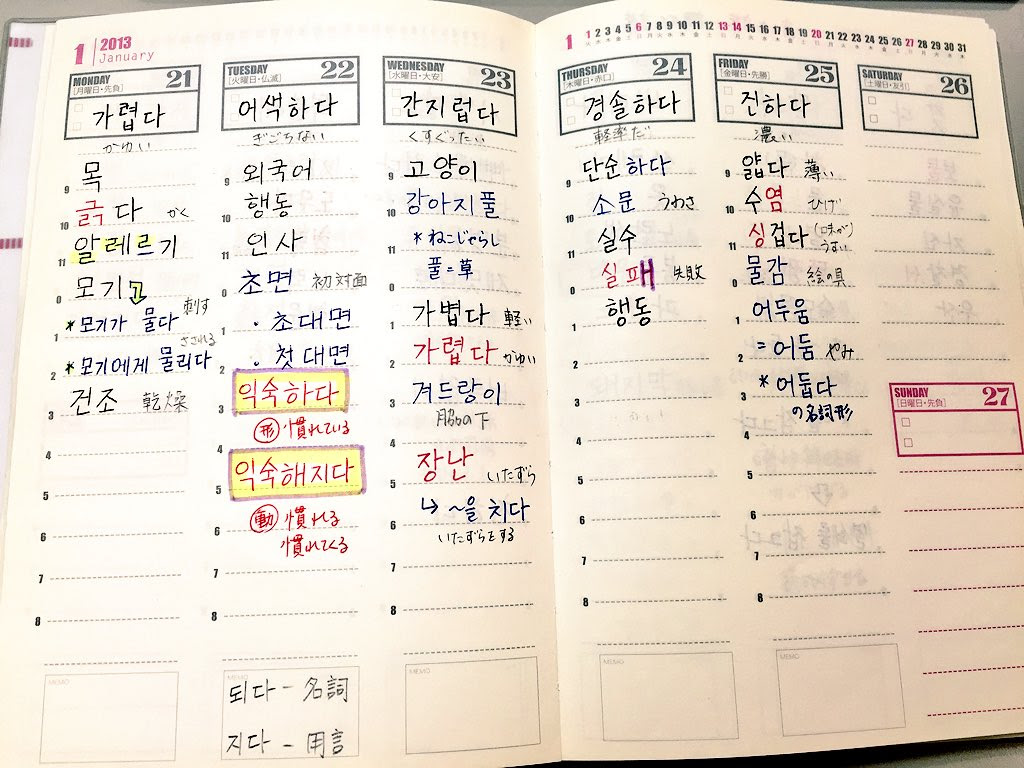 1 2013
January
MONDAY 21
[月曜日・先負]
가렵다
かゆい
9 목
10 긁다 かく
11 알레르기
0 모기
刺す
1 * 모기가 물다
さされる
2 * 모기에게 물리다
3 건조 乾燥
4
5
6
7
8
MEMO
TUESDAY 22
[火曜日・仏滅]
어색하다
ぎごちない
9 외국어
10 행동
11 인사
0 초면 初対面
1 ・초대면
2 ・첫대면
3 익숙하다
形 慣れている
4
5 익숙해지다
6 動 慣れる
慣れてくる
7
8
MEMO
되다 - 名詞
지다 - 用言
WEDNESDAY 23
[水曜日・大安]
간지럽다
くすぐったい
9 고양이
10 강아지풀
11 * ねこじゃらし
0 풀=草
1 가볍다 軽い
2 가렵다 かゆい
3 겨드랑이
脇の下
4
5 장난 いたずら
6 ↳ ~을 치다
いたずらをする
7
8
MEMO
1 1 2 3 4 5 6 7 8 9 10 11 12 13 14 15 16 17 18 19 20 21 22 23 24 25 26 27 28 29 30 31
THURSDAY 24
[木曜日・赤口]
경솔하다
軽率だ
9 단순하다
10 소문 うわさ
11 실수
0 실패 失敗
1 행동
2
3
4
5
6
7
8
MEMO
FRIDAY 25
[金曜日・先勝]
진하다
濃い
9 얇다 薄い
10 수염 ひげ
11 싱겁다 (味が)うすい
0 물감 絵の具
1 어두움
2 = 어둠 やみ
3 * 어둡다
の名詞形
4
5
6
7
8
MEMO
SATURDAY 26
[土曜日・友引]
SUNDAY 27
[日曜日・先負]